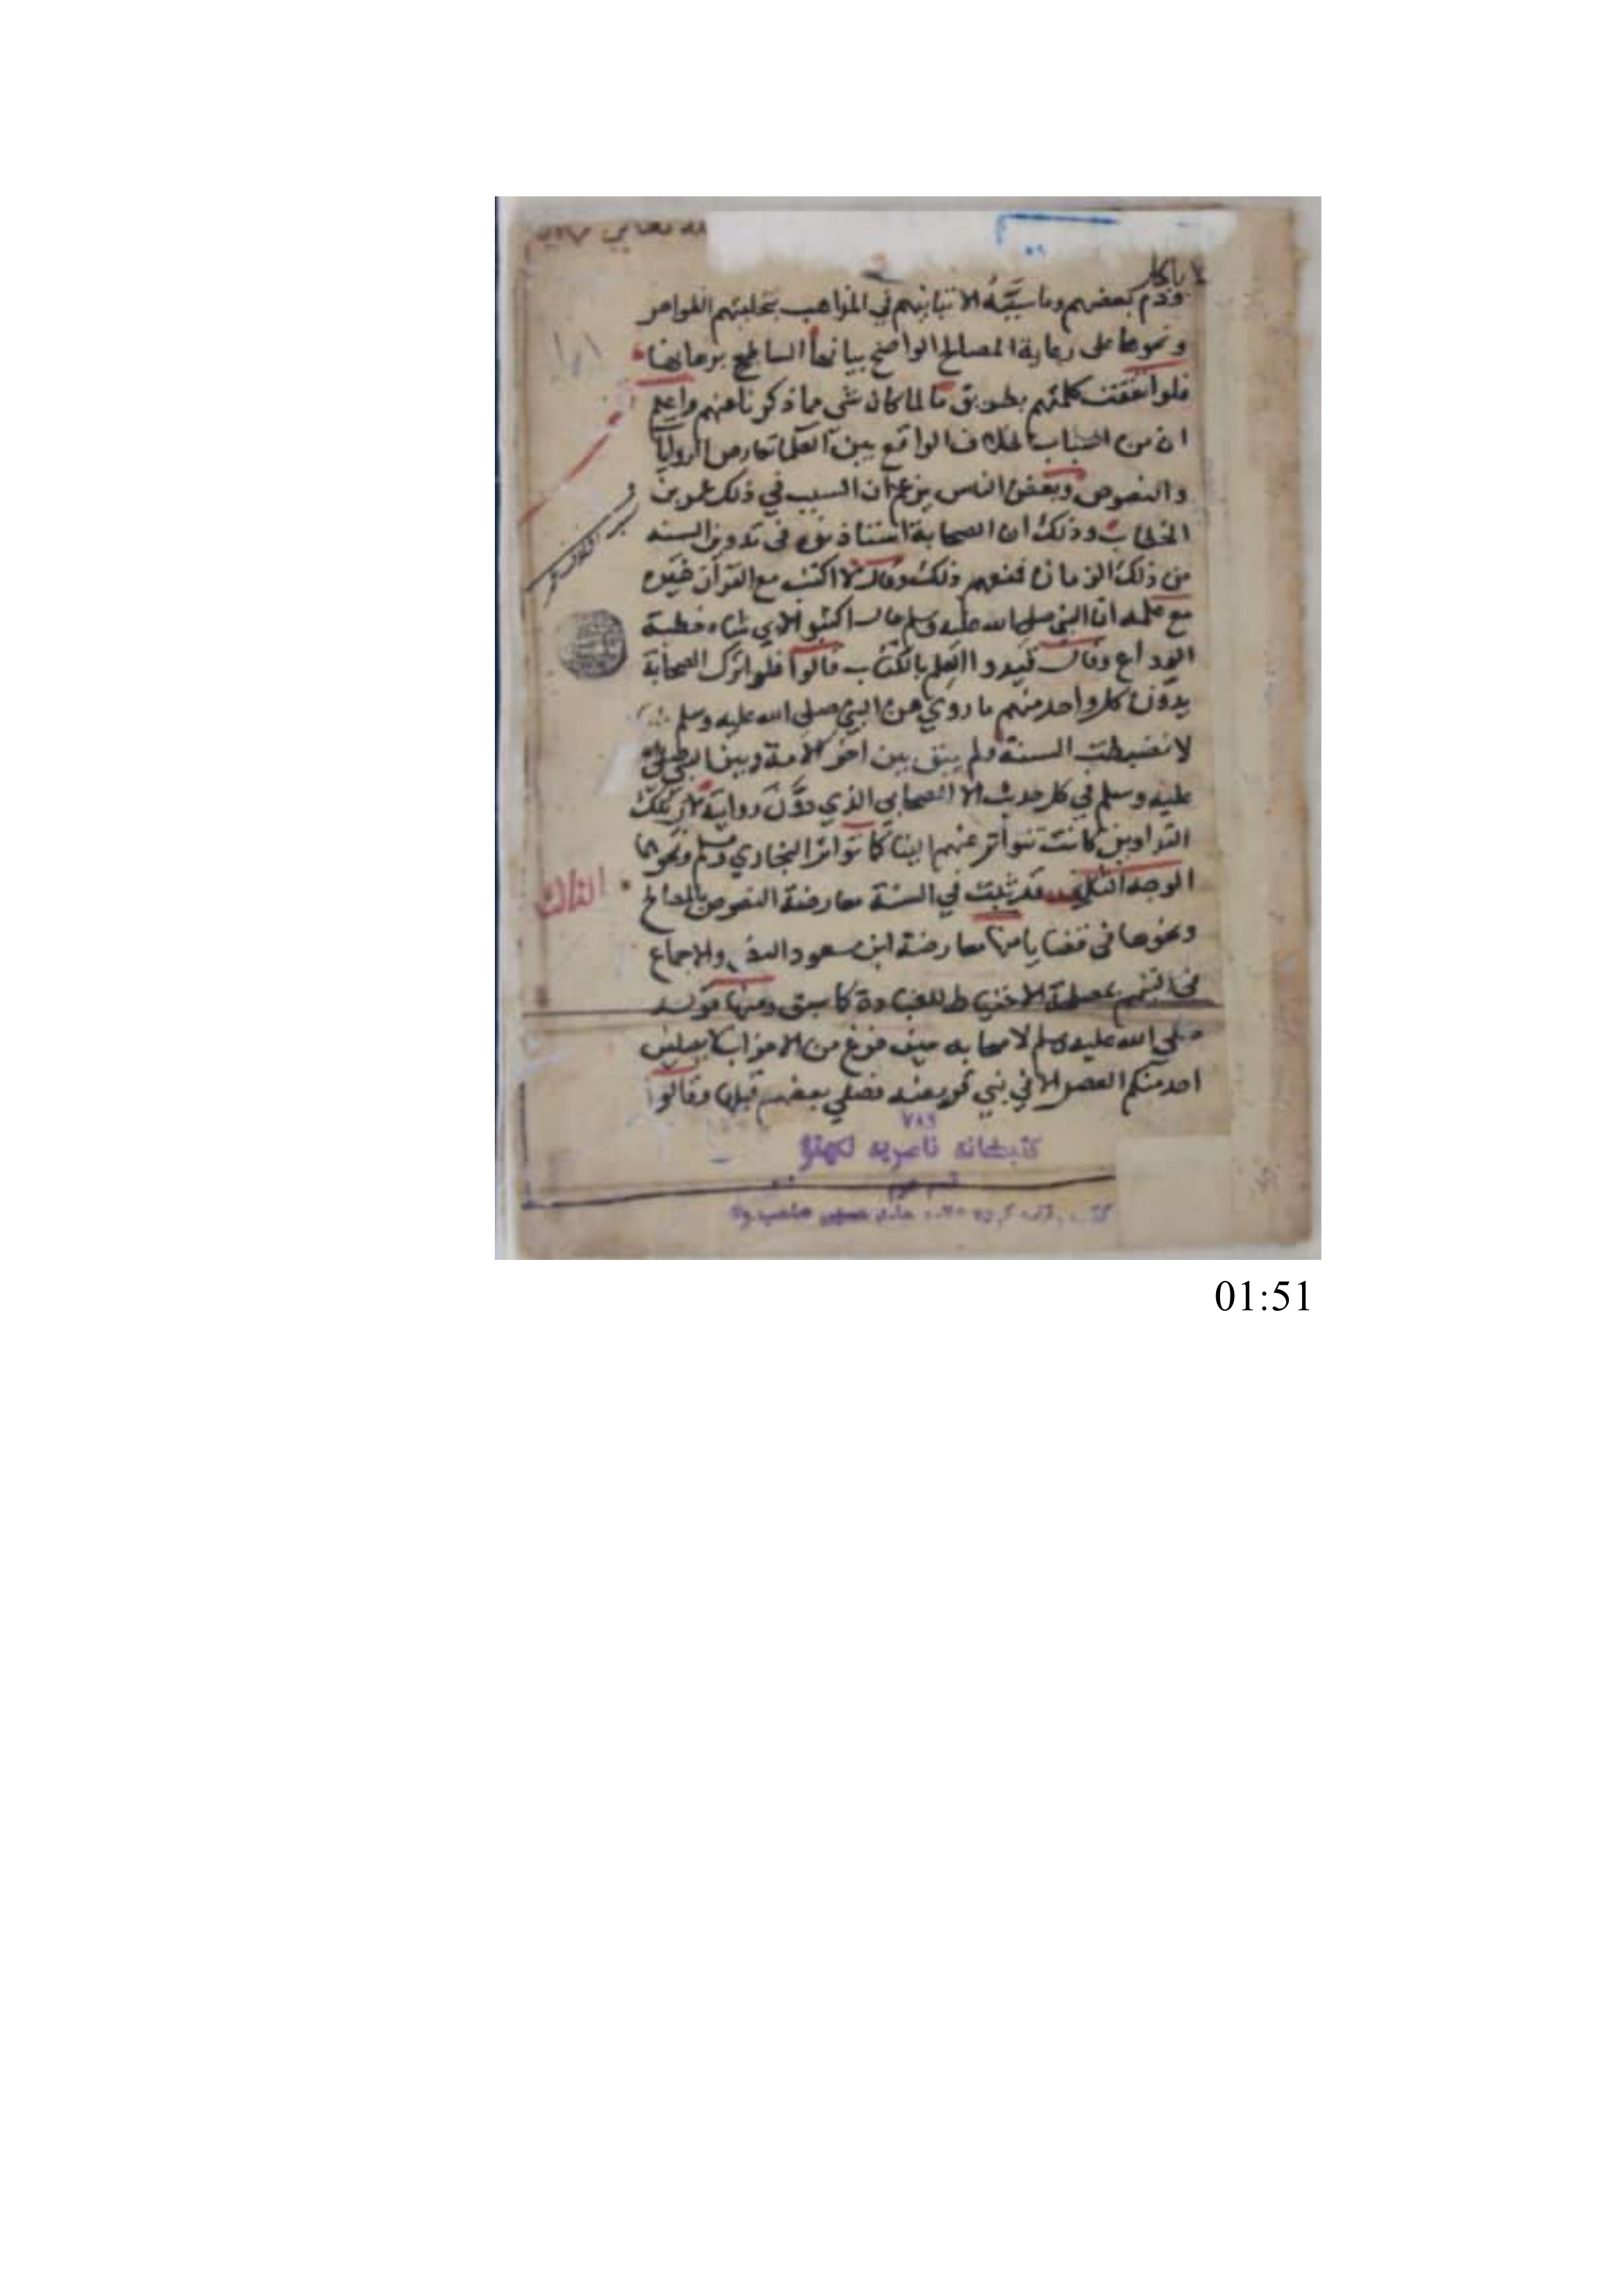 باكار
ودم بعضهم وما سببه الا تباينهم في المذاهب بتحليتهم الظواهر
ونحوها على رعاية المصالح الواضح بيانها الساطع برهانها
فلو اتفقت كلمتهم بطريق ما لما كان شي مما ذكرنا عنهم واعلم
ان من اسباب الخلاف الواقع بين العلما تعارض الروايات
والنصوص وبعض الناس يزعم ان السبب في ذلك عمر بن
الخطاب وذلك ان الصحابة استاذنوه في تدوين السنه
من ذلك الزمان فمنعهم ذلك وقال لا اكتب مع القرآن غيره
مع علمه ان النبي صلى الله عليه وسلم قال اكتبوا لابي شاه خطبة
الوداع وقال قيدوا العلم بالكتاب قالوا فلو ترك الصحابة
يدون كل واحد منهم ما روي عن النبي صلى الله عليه وسلم
لانضبطت السنة ولم يبق بين اخر الامة وبين النبي صلى الله
عليه وسلم في كل حديث الا الصحابي الذي دوّن روايته لان تلك
التداوين كانت تتواتر عنهم الينا كما تواتر البخاري ومسلم ونحوها
الوجه الثالث قد ثبت في السنة معارضة النصوص بالمصالح
الثالث
ونحوها في قضايا منها معارضة ابن مسعود النص والاجماع
في التيمم بمصلحة الاحتياط للعبادة كما سبق ومنها قوله
صلى الله عليه وسلم لاصحابه حين فرغ من الاحزاب لا يصلين
احد منكم العصر الا في بني قريضه فصلي بعضهم قبلها وقالوا
٧٨٦
كتبخانه ناصريه لكهنؤ
01:51